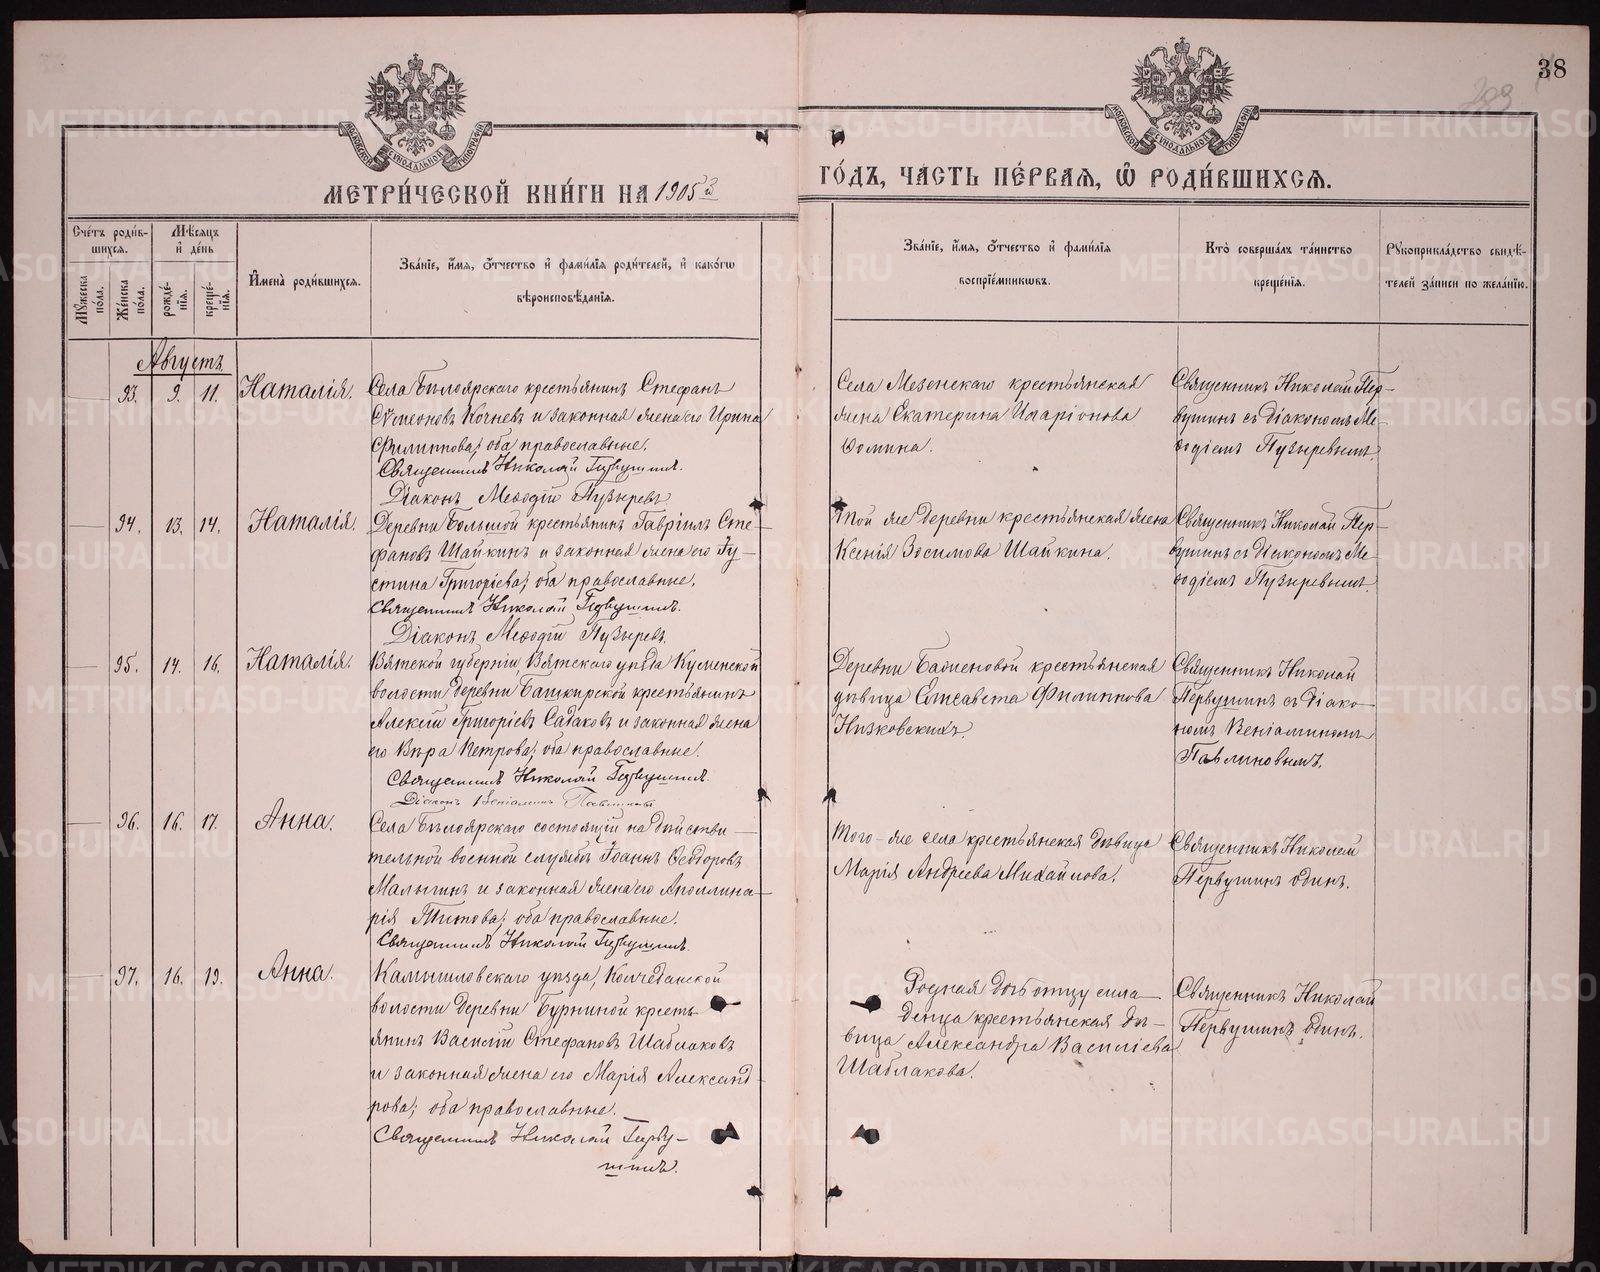 38
299
МЕТРИ́ЧЕСКОЙ КНИ́ГИ НА 1905й
ГО́ДЪ, ЧАСТЬ ПЕ́РВАѦ, Ѡ҆ РОДИ́ВШИХСѦ.
Сче́тъ роди́в-
шихсѧ.
Мѣ́сѧцъ
и҆ де́нь
Мꙋ́жеска по́ла.
Же́нска по́ла.
рожде́-
нїѧ.
креще́-
нїѧ.
И҆мена̀ роди́вшихсѧ.
Зва́нїе, и҆́мѧ, ѻ҆́тчество и҆ фами́лїѧ роди́телей, и҆ како́гѡ
вѣроисповѣ́данїѧ.
Зва́нїе, и҆́мѧ, ѻ҆́тчество и҆ фами́лїѧ
воспрїе́мникѡвъ.
Кто̀ соверша́лъ та́инство
креще́нїѧ.
Рꙋкоприкла́дство свидѣ́-
телей за́писи по жела́нїю.
Августъ
93. 9. 11. Наталія.
Села Бѣлоярскаго крестьянинъ Стефанъ
Сѵмеоновъ Кочневъ и законная жена его Ирина
Филиппова; оба православные.
Священникъ Николай Первушинъ.
Діаконъ Меѳодій Пузыревъ
Села Мезенскаго крестьянская
жена Екатерина Иларіонова
Ѳомина.
Священникъ Николай Пер-
вушинъ съ діакономъ Ме-
ѳодіемъ Пузыревымъ.
94. 13. 14. Наталія.
Деревни Большой крестьянинъ Гавріилъ Сте-
фановъ Шайкинъ и законная жена его Іу-
стина Григоріева; оба православные.
Священникъ Николай Первушинъ.
Діаконъ Меѳодій Пузыревъ.
Той же деревни крестьянская жена
Ксенія Зосимова Шайкина.
Священникъ Николай Пер-
вушинъ съ діакономъ Ме-
ѳодіемъ Пузыревымъ.
95. 14. 16. Наталія.
Вятской губерніи, Вятскаго уѣзда Куменской
волости деревни Башкирской крестьянинъ
Алексій Григоріевъ Садаковъ и законная жена
его Вѣра Петрова; оба православные.
Священникъ Николай Первушинъ.
Діаконъ Веніаминъ Павлиновъ
Деревни Баженовой крестьянская
дѣвица Елисавета Филиппова
Низковскихъ.
Священникъ Николай
Первушинъ съ діако-
номъ Веніаминомъ
Павлиновымъ.
96. 16. 17. Анна.
Села Бѣлоярскаго состоящій на дѣйстви-
тельной военной службѣ Іоаннъ Ѳеодоровъ
Малыгинъ и законная жена его Аполлина-
рія Титова; оба православные.
Священникъ Николай Первушинъ.
Того-же села крестьянская дѣвица
Марія Андреева Михайлова.
Священникъ Николай
Первушинъ одинъ.
97. 16. 19. Анна.
Камышловскаго уѣзда, Колчеданской
волости деревни Бурниной кресть-
янинъ Василій Стефановъ Шаблаковъ
и законная жена его Марія Александ-
рова; оба православные.
Священникъ Николай Перву-
шинъ.
Родная дочь отцу мла-
денца крестьянская дѣ-
вица Александра Василіева
Шаблакова.
Священникъ Николай
Первушинъ одинъ.